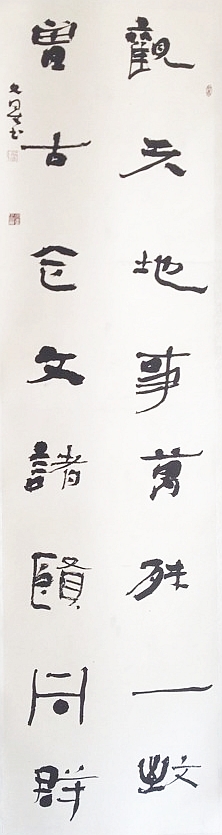 觀天地事萬殊一致
會古今文諸賾同群